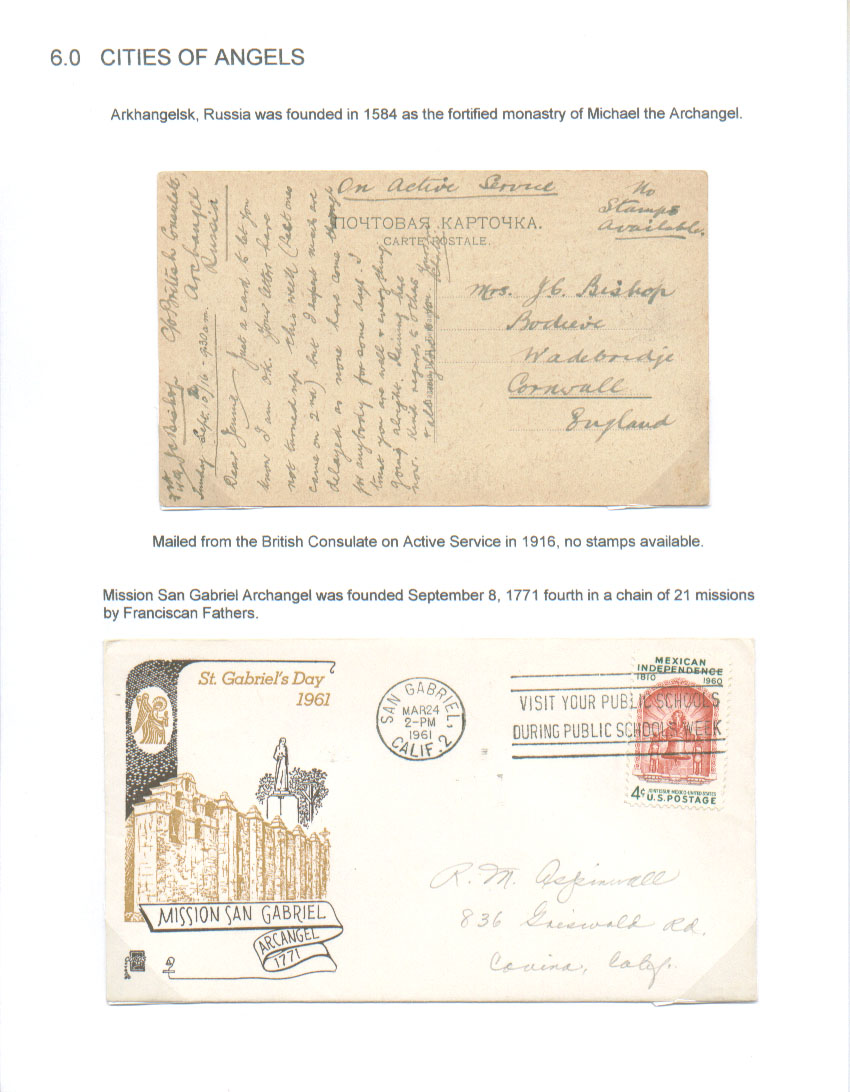 6.0 CITIES OF ANGELS
Arkhangelsk, Russia was founded in 1584 as the fortified monastry of Michael the Archangel.
On Active Service
No
Stamps
Available.
ПОЧТОВАЯ КАРТОЧКА.
CARTE POSTALE.
Mrs. J C. Bishop
Bodieve
Wadebridge
Cornwall
England
Bishop c/o British Consulate,
Archangel
Russia
Sunday Sept. 10/16 - 9.30 am.
Dear Jennie Just a card to let you
know I am OK. Your letters have
not turned up this week (last ones
came on 2nd) but I expect mails are
delayed as none have come through
for anybody for some days. I
trust you are well & everything
going alright. Raining here
now. Kind regards to others
Mailed from the British Consulate on Active Service in 1916, no stamps available.
Mission San Gabriel Archangel was founded September 8, 1771 fourth in a chain of 21 missions
by Franciscan Fathers.
St. Gabriel's Day
1961
SAN GABRIEL,
MAR 24
2-PM
1961
CALIF. 2
VISIT YOUR PUBLIC SCHOOLS
DURING PUBLIC SCHOOLS WEEK
MEXICAN
INDEPENDENCE
1810 1960
4¢ JOINT ISSUE·MEXICO·UNITED STATES
U.S. POSTAGE
R. M. Aspinwall
836 Griswold Rd.
Covina, Calif.
MISSION SAN GABRIEL
ARCANGEL
1771